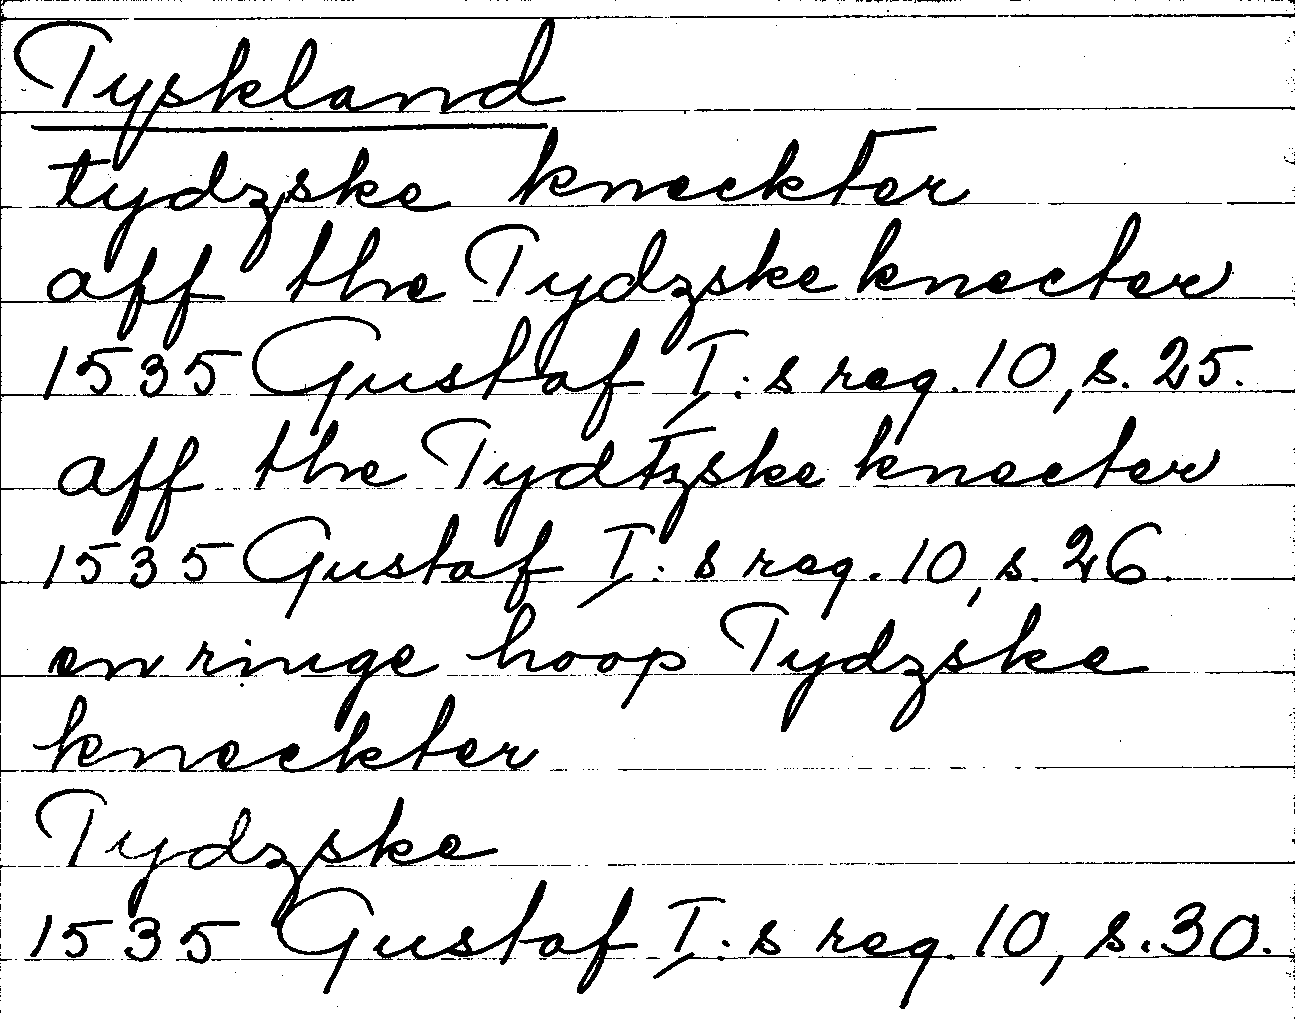 Tyskland
tydzske kneckter
aff the Tydzske knecter
1535 Gustaf I:s reg. 10, s. 25.
aff the Tydtzske knecter
1535 Gustaf I:s reg. 10, s. 26.
en ringe hoop Tydzske
kneckter
Tydzske
1535 Gustaf I:s reg. 10, s. 30.